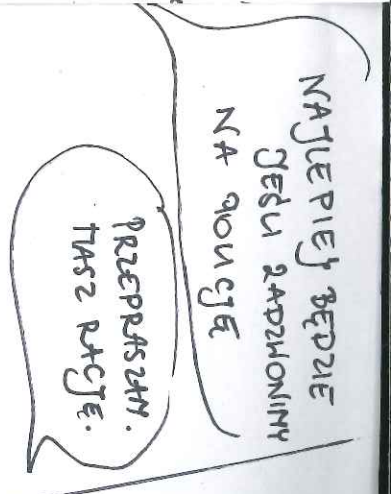 NAJLEPIEJ BĘDZIE
JEŚLI ZADZWONIMY
NA POLICJĘ
PRZEPRASZAM.
MASZ RACJĘ.